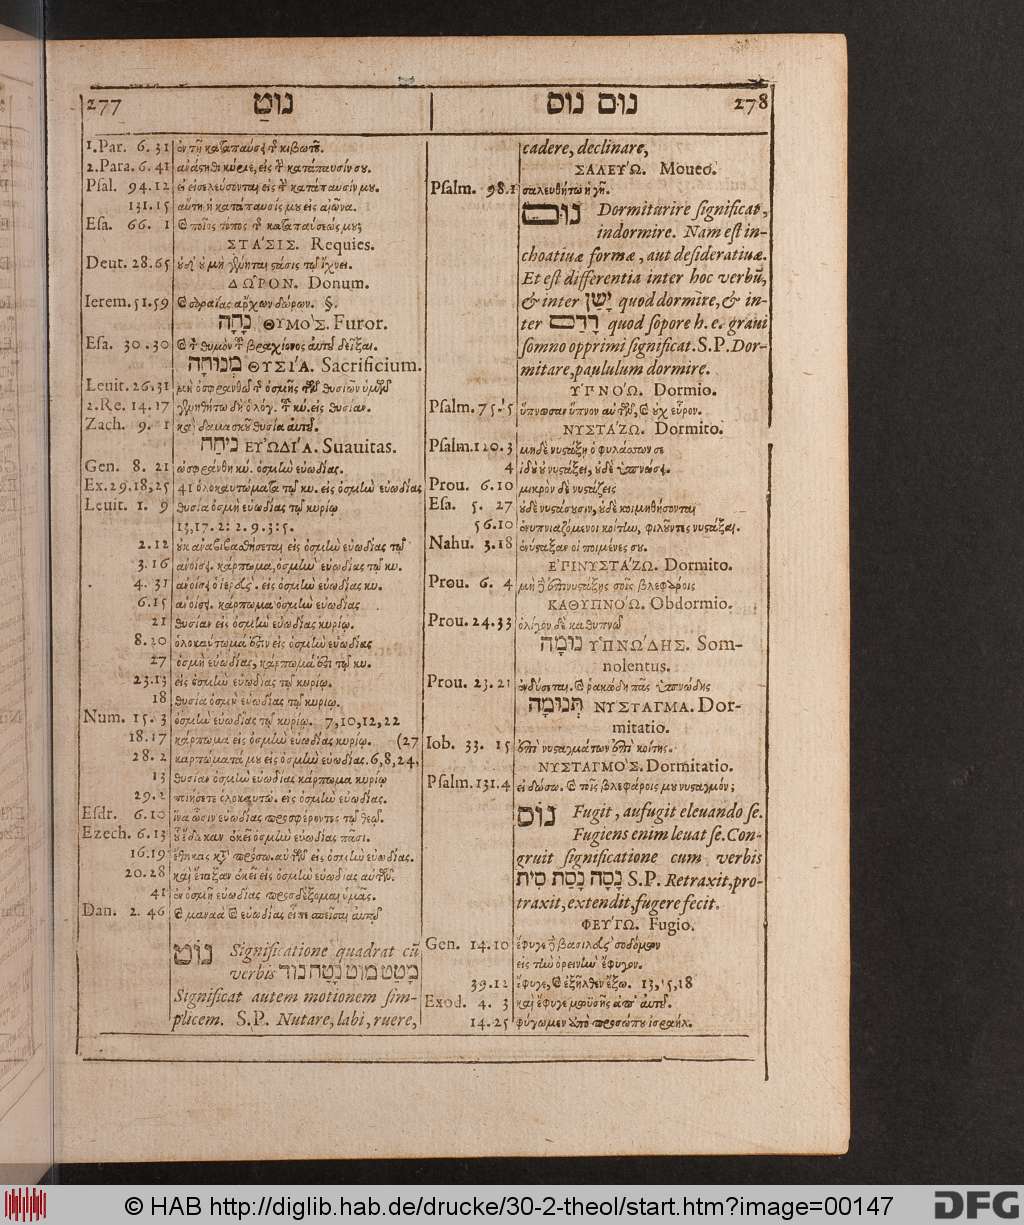 277 נוט
1. Par. 6. 31 ἐν τῇ καταπαύσει τ῀ κιβωτοῦ.
2. Para. 6. 41 ἀνάστηθι κύριε, εἰς τ῀ κατάπαυσίν σου.
Psal. 94. 12 εἰ εἰσελεύσονται εἰς τ῀ κατάπαυσίν μου.
131. 15 αὕτη ἡ κατάπαυσίς μου εἰς αἰῶνα.
Esa. 66. 1 καὶ ποῖος τόπος τ῀ καταπαύσεώς μου;
ΣΤΑ´ΣΙΣ. Requies.
Deut. 28. 65 οὐδ' οὐ μὴ γένηται στάσις τῷ ἴχνει.
ΔΩ῀ΡΟΝ. Donum.
Ierem. 51. 59 καὶ σαραίας ἄρχων δώρων. §.
נָחָה ΘΥΜΟ`Σ. Furor.
Esa. 30. 30 καὶ τ῀ θυμὸν τ῀ βραχίονος αὐτοῦ δεῖξαι.
מְנוּחָה ΘΥΣΙ´Α. Sacrificium.
Leuit. 26. 31 μὴ ὀσφρανθῶ τ῀ ὀσμῆς τῶν θυσιῶν ὑμῶν
2. Re. 14. 17 γενηθήτω δὴ ὁ λόγ. τ῀ κυ. εἰς θυσίαν.
Zach. 9. 1 καὶ δαμασκοῦ θυσία αὐτοῦ.
נִיחֹחַ ΕΥ'ΩΔΙ´Α. Suauitas.
Gen. 8. 21 ὠσφράνθη κύ. ὀσμὴν εὐωδίας.
Ex. 29. 18, 25 41 ὁλοκαυτώματα τῷ κυ. εἰς ὀσμὴν εὐωδίας
Leuit. 1. 9 θυσία ὀσμὴ εὐωδίας τῷ κυρίῳ
13, 17. 2: 2. 9. 3: 5.
2. 12 οὐκ ἀναβιβασθήσεται εἰς ὀσμὴν εὐωδίας τῷ
3. 16 ἀνοίσει κάρπωμα, ὀσμὴν εὐωδίας τῷ κυ.
4. 31 ἀνοίσει ὁ ἱερεὺς. εἰς ὀσμὴν εὐωδίας κυ.
6. 15 ἀνοίσει κάρπωμα ὀσμὴν εὐωδίας
21 θυσίαν εἰς ὀσμὴν εὐωδίας κυρίῳ.
8. 20 ὁλοκαύτωμά ἐστιν εἰς ὀσμὴν εὐωδίας
27 ὀσμὴ εὐωδίας, κάρπωμά ἐστι τῷ κυ.
23. 13 εἰς ὀσμὴν εὐωδίας τῷ κυρίῳ.
18 θυσία ὀσμὴν εὐωδίας τῷ κυρίῳ.
Num. 15. 3 ὀσμὴν εὐωδίας τῷ κυρίῳ. 7, 10, 12, 22
18. 17 κάρπωμα εἰς ὀσμὴν εὐωδίας κυρίῳ. (27
28. 2 καρπώματά μου εἰς ὀσμὴν εὐωδίας. 6, 8, 24,
13 θυσίαν ὀσμὴν εὐωδίας κάρπωμα κυρίῳ
29. 2 ποιήσετε ὁλοκαυτώ. εἰς ὀσμὴν εὐωδίας.
Esdr. 6. 10 ἵνα ὦσιν εὐωδίας προσφέροντες τῷ θεῷ.
Ezech. 6. 13 οὗ ἔδωκαν ἐκεῖ ὀσμὴν εὐωδίας πᾶσι.
16. 19 ἔθηκας κατὰ πρόσω. αὐτῶν εἰς ὀσμὴν εὐωδίας.
20. 28 καὶ ἔταξαν ἐκεῖ εἰς ὀσμὴν εὐωδίας αὐτῶν.
41 ἐν ὀσμῇ εὐωδίας προσδέξομαι ὑμᾶς.
Dan. 2. 46 καὶ μαναὰ καὶ εὐωδίας εἶπε σπεῖσαι αὐτῷ
נוֹט Significatione quadrat cũ
verbis מָטַט מוֹט נָטָה נוּד
Significat autem motionem sim-
plicem. S.P. Nutare, labi, ruere,
נוּם נוס 278
cadere, declinare,
ΣΑΛΕΥ´Ω. Moueo.
Psalm. 98. 1 σαλευθήτω ἡ γῆ.
נוּם Dormiturire significat,
indormire. Nam est in-
choatiuæ formæ, aut desideratiuæ.
Et est differentia inter hoc verbũ,
& inter יָשֵׁן quod dormire, & in-
ter רָדַם quod sopore h. e. graui
somno opprimi significat. S.P. Dor-
mitare, paululum dormire.
ΥΠΝΟ´Ω. Dormio.
Psalm. 75. 5 ὕπνωσαν ὕπνον αὐτῶν, καὶ οὐχ εὗρον.
ΝΥΣΤΑ´ΖΩ. Dormito.
Psalm. 120. 3 μηδὲ νυστάξῃ ὁ φυλάσσων σε
4 ἰδοὺ οὐ νυστάξει, οὐδὲ ὑπνώσει.
Prou. 6. 10 μικρὸν δὲ νυστάζεις
Esa. 5. 27 οὐδὲ νυστάσουσιν, οὐδὲ κοιμηθήσονται
56. 10 ἐνυπνιαζόμενοι κοίτην, φιλοῦντες νυστάξαι.
Nahu. 3. 18 ἐνύσταξαν οἱ ποιμένες σου.
Ε'ΠΙΝΥΣΤΑ´ΖΩ. Dormito.
Prou. 6. 4 μὴ δὲ ἐπινυστάξῃς σοῖς βλεφάροις
ΚΑΘΥΠΝΟ´Ω. Obdormio.
Prou. 24. 33 ὀλίγον δὲ καθυπνῶ
נוּמָה ΥΠΝΩ´ΔΗΣ. Som-
nolentus.
Prou. 23. 21 ἐνδύσεται. καὶ ῥακώδη πᾶς ὑπνώδης
תְּנוּמָה ΝΥΣΤΑΓΜΑ. Dor-
mitatio.
Iob. 33. 15 ἐπὶ νυσταγμάτων ἐπὶ κοίτης.
ΝΥΣΤΑΓΜΟ`Σ. Dormitatio.
Psalm. 131. 4 εἰ δώσω. καὶ τοῖς βλεφάροις μου νυσταγμόν;
נוֹס Fugit, aufugit eleuando se.
Fugiens enim leuat se. Con-
gruit significatione cum verbis
נָסָה נָסַת סִית S.P. Retraxit, pro-
traxit, extendit, fugere fecit.
ΦΕΥ´ΓΩ. Fugio.
Gen. 14. 10 ἔφυγε δὲ βασιλεὺς σοδόμων
εἰς τὴν ὀρεινὴν ἔφυγον.
39. 12 ἔφυγε, καὶ ἐξῆλθεν ἔξω. 13, 15, 18
Exod. 4. 3 καὶ ἔφυγε μωϋσῆς ἀπ' αὐτοῦ.
14. 25 φύγωμεν ἀπὸ προσώπου ἰσραήλ.
© HAB http://diglib.hab.de/drucke/30-2-theol/start.htm?image=00147
DFG